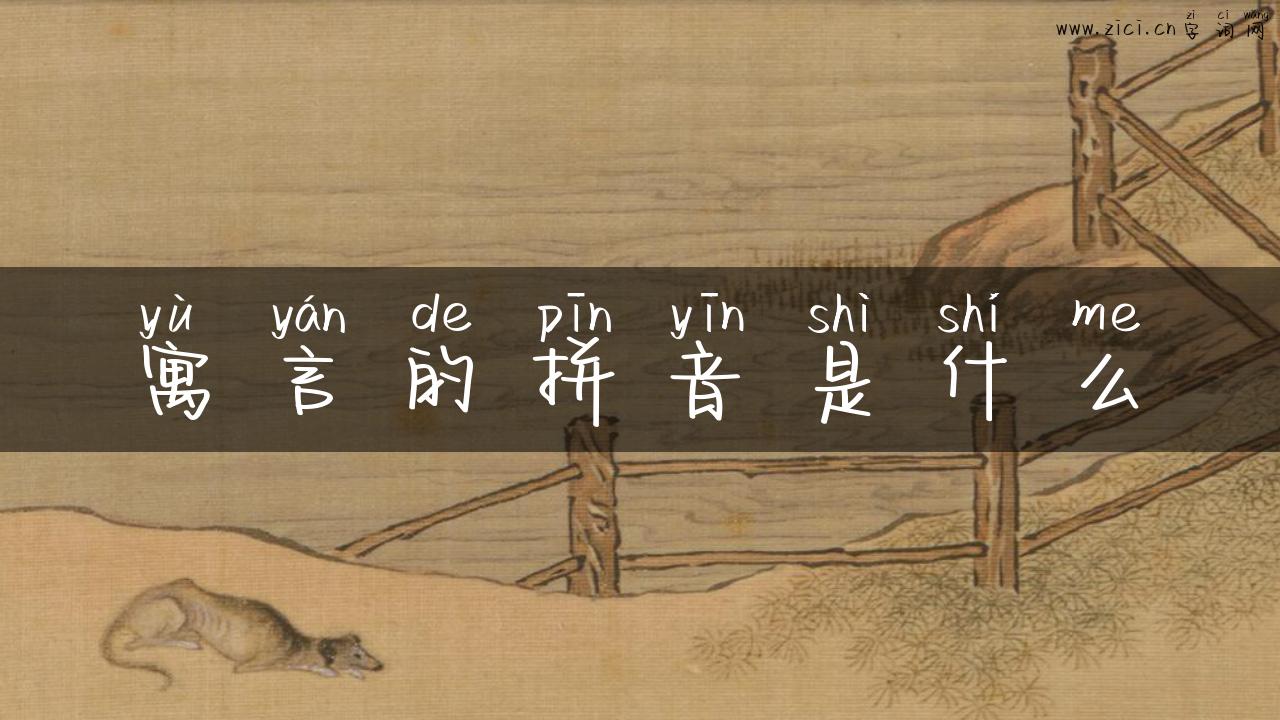 zì cí wǎng
www.zici.cn 字词网
yù yán de pīn yīn shì shí me
寓言的拼音是什么